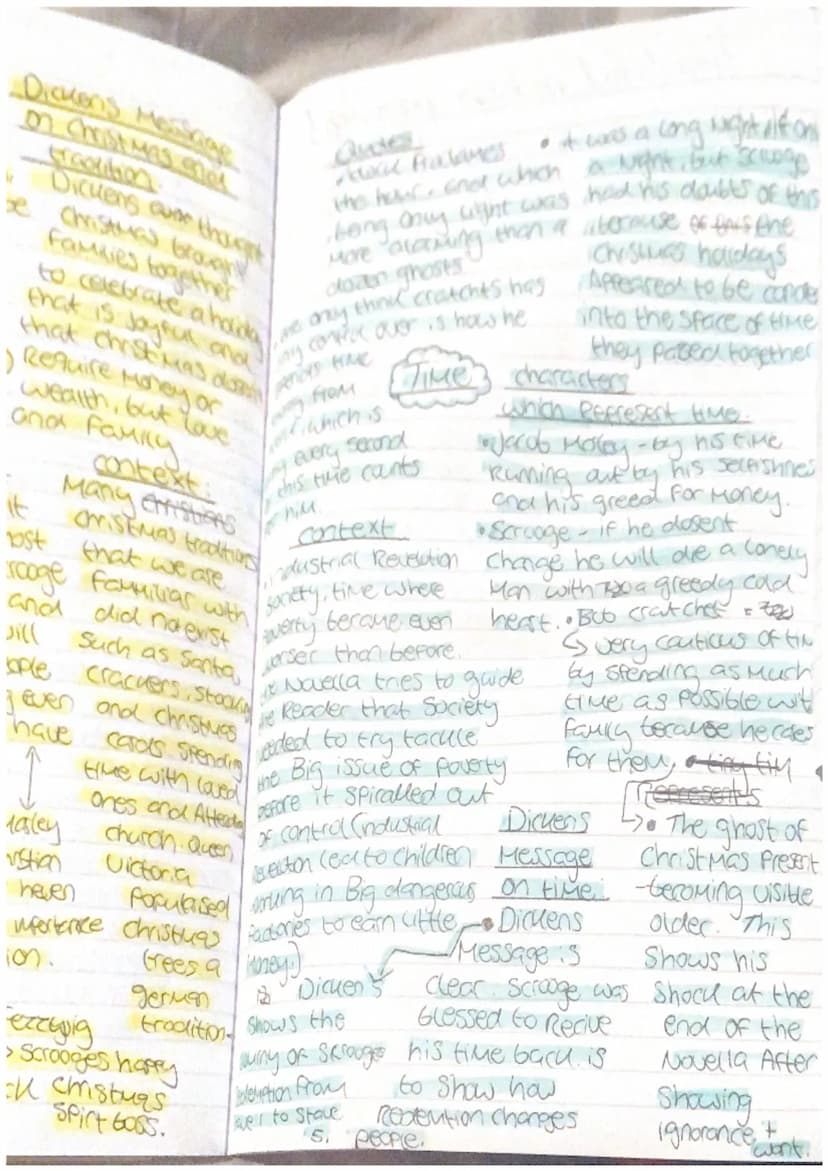 Dickens Message
on Christmas and
tradition.
Dickens ever thought
Christmas brought
families together
to celebrate a holiday
that is joyful and
that christmas dosent
Require Money or
wealth, but love
and family
context.
Many christians
christmas traditions
that we are
familiar with
did no exist
such as Santa,
crackers, stocking
and christmas
carols spending
time with loved
ones and Attending
church. Queen
Victoria
Popularised
christmas
trees a
german
tradition.
it
and
even
have
Marley
heven
importance
ion.
Fezziwig
> Scrooges happy
christmas
spirt boss.
Quotes
the hour, and which
being only light was
More alarming than a
dozen ghosts
• it was a long Night if only
a Night, but Scrooge
had his doubts of this
because of this the
Christmas holidays
Appeared to be conde
into the space of time
they passed together
only think cratchits has
control over is how he
time
from
which is
every second
this time counts
him.
Time
characters
which Represent time.
• Jacob Marley - by his time
Running out by his selfishnes
and his greed for Money.
• Scrooge - if he dosent
change he will die a lonely
Man with a greedy cold
heart. • Bob cratchet =
↳ very cautious of tim
by spending as Much
time as possible wit
family because he cares
for them, • tiny tim
Represents
• The ghost of
Christmas Present
- becoming visible
older. This
shows his
shock at the
end of the
Novella After
showing
ignorance +
want.
context
industrial Revolution
society, time where
poverty became even
worser than before.
Novella tries to guide
the Reader that Society
needed to try tackle
the Big issue of poverty
before it spiralled out
of control (industrial
Revolution lead to children
working in Big dangerous
factories to earn little
money.)
Dickens
Message
on time.
• Dickens
Message is
clear. Scrooge was
blessed to Recive
his time back is
to show how
Redemtion changes
people.
Dicken's
shows the
of Scrooge
Redemtion from
stave 1 to stave
5.